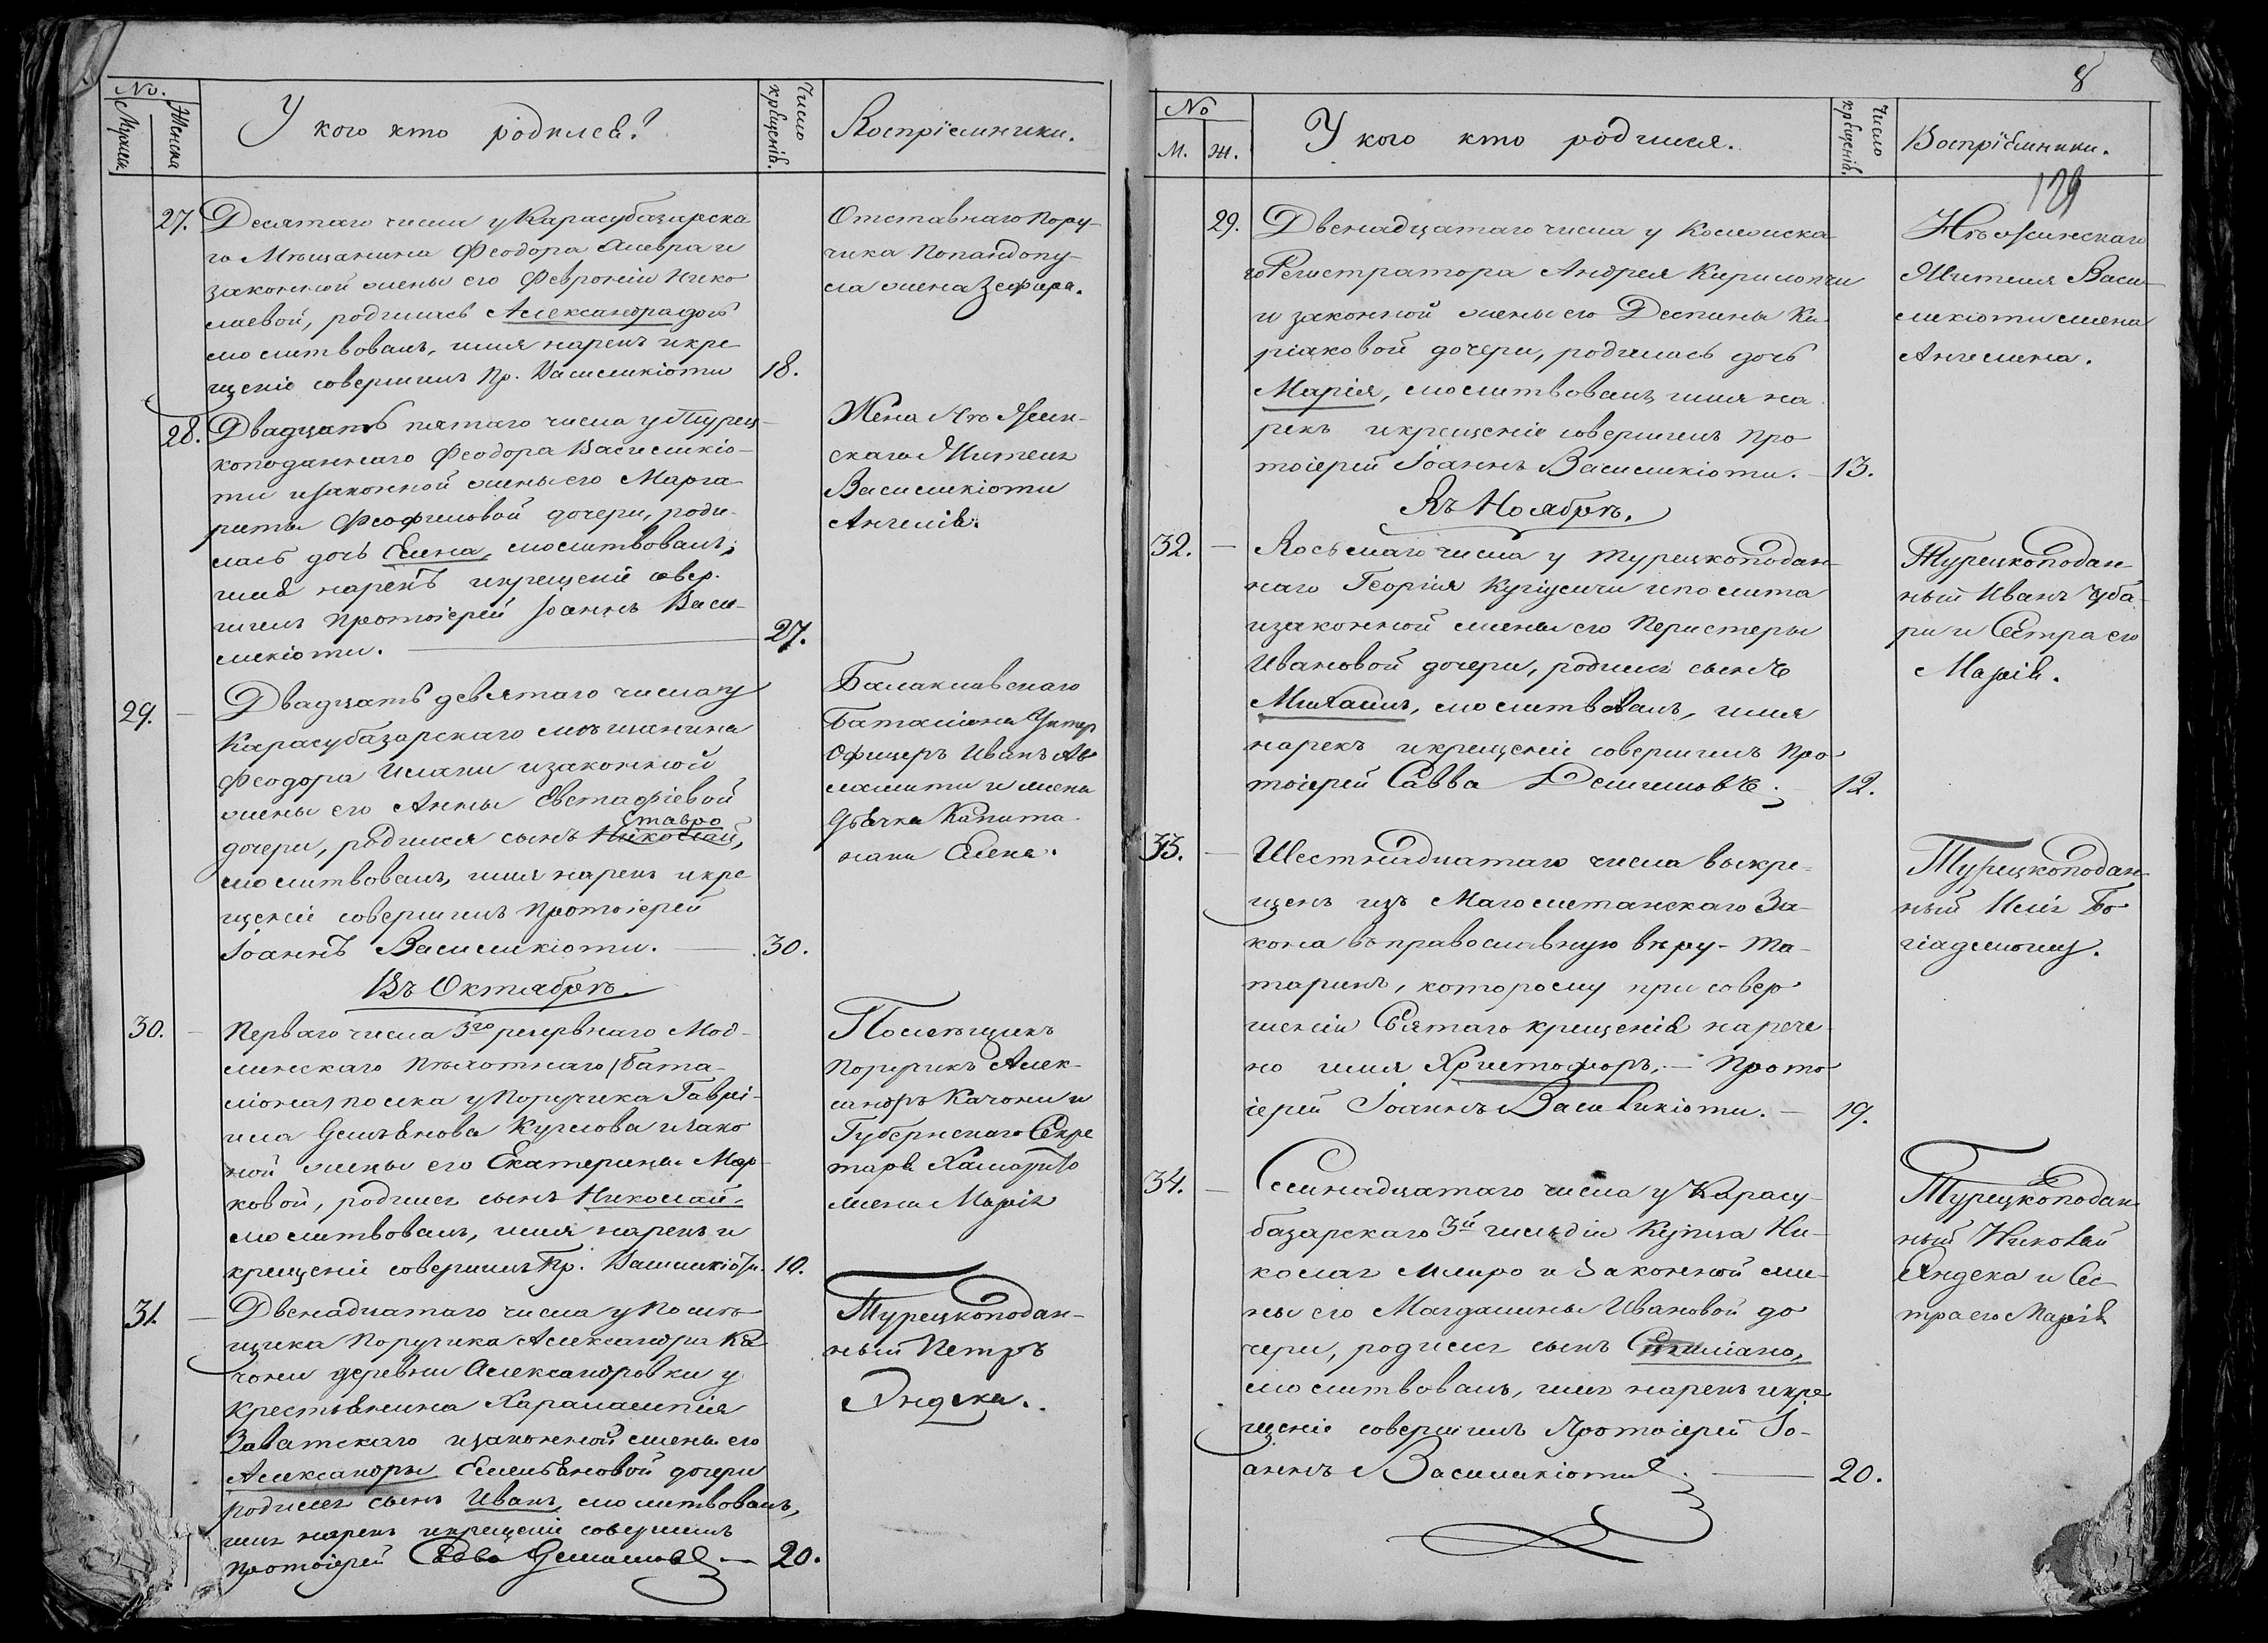 No.
Мужеска
Женска
У кого кто родился?
Число крещенія.
Воспріемники.
27. Десятаго числа у Карасубазарска
го Мѣщанина Феодора
законной жены его Февроніи Нико
лаевой, родилась Александра дочь
молитвовалъ, имя нарекъ и кре
щеніе совершилъ Пр. Василикіоти 18.
Отставнаго Пору-
чика Попандопу-
ла жена Зефира.
28. Двадцать пятаго числа у Турец-
коподаннаго Феодора Василикіо-
ти и законной жены его Марга
риты Феофиловой дочери, роди-
лась дочь Елена, молитвовалъ,
имя нарекъ и крещеніе совер-
шилъ Протоіерей Іоаннъ Васи-
ликіоти. 27.
Жена Нѣжин-
скаго Жителя
Василикіоти
Ангелія.
29. Двадцать девятаго числа у
Карасубазарскаго мѣщанина
Феодора и законной
жены его Анны Евстафіевой
Ставро
дочери, родился сынъ Николай,
молитвовалъ, имя нарекъ и кре
щеніе совершилъ Протоіерей
Іоаннъ Василикіоти. 30.
Балаклавскаго
Баталіона Унтер
Офицеръ Иванъ Ав
и жена
Дьячка Капита
наки Елена.
Въ Октябрѣ.
30. Перваго числа 3го резервнаго Мод-
линскаго Пѣхотнаго (Бата-
ліона) полка у Поручика Гаврі-
ила Демьянова и зако
ной жены его Екатерины Мар-
ковой, родился сынъ Николай.
молитвовалъ, имя нарекъ и
крещеніе совершилъ Пр. Василикіоти. 10.
Помѣщикъ
Поручикъ Алек-
сандръ Качони и
Губернскаго Секре
таря
жена Марія
31. Двенадцатаго числа у Помѣ
щика Поручика Александра Ка
чони деревни Александровки у
Крестьянина Харалампія
Заватскаго и законной жены его
Александры Емельяновой дочери
родился сынъ Иванъ, молитвовалъ,
имя нарекъ и крещеніе совершилъ
Протоіерей Савва Демишовъ 20.
Турецкоподан-
ный Петръ
Яндека.
8
No
М. Ж.
У кого кто родился.
Число крещенія.
Воспріемники.
129
29. Двенадцатаго числа у Колежска
го Регистратора Андрея
и законной жены его Деспины Ки-
ріаковой дочери, родилась дочь
Марія, молитвовалъ имя на
рекъ и крещеніе совершилъ Про
тоіерей Іоаннъ Василикіоти. 13.
Нѣжинскаго
Жителя Васи
ликіоти жена
Ангелина.
Въ Ноябрѣ.
32. Восьмаго числа у Турецкоподан-
наго Георгія
и законной жены его Перистеры
Ивановой дочери, родился сынъ
Михаилъ, молитвовалъ, имя
нарекъ и крещеніе совершилъ Про
тоіерей Савва Демишовъ. 12.
Турецкоподан-
ный Иванъ Чуба-
ри и Сестра его
Марія.
33. Шестнадцатаго числа выкре-
щенъ изъ Магометанскаго За-
кона въ православную вѣру Та-
таринъ, которому при совер
шеніи Святаго крещенія нарече
но имя Христофоръ. Прото
іерей Іоаннъ Василикіоти. 19.
Турецкоподан-
ный Илія
34. Семнадцатаго числа у Карасу-
базарскаго 3й гильдіи Купца Ни-
колая и законной же-
ны его Магдалины Ивановой до
чери, родился сынъ Стиліано,
молитвовалъ, имя нарекъ и кре
щеніе совершилъ Протоіерей Іо-
аннъ Василикіоти. 20.
Турецкоподан
ный Николай
Яндека и Сес
тра его Марія